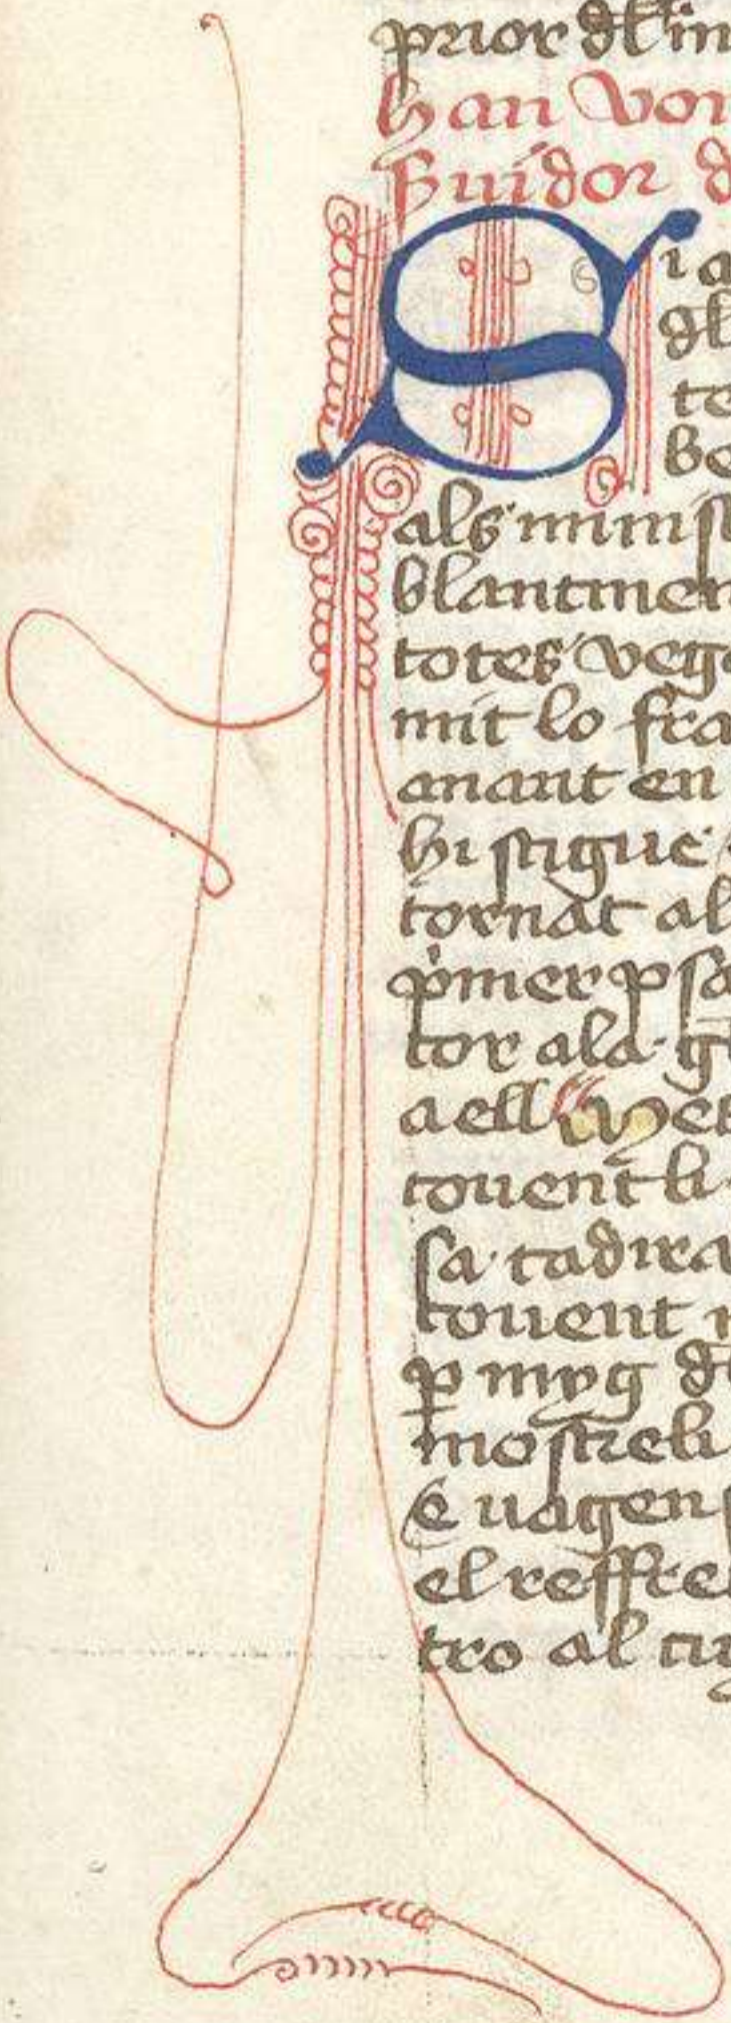 prior dl' in
han von
Suidor d
Sia
dl
te
be
als minist
blantmen
totes vega
mit lo fra
anant en
hi stigue
tornat al
p̀mer p sa
tor ala g̃
a ell Met
couent li
sa cadira
couent
p̱ myg d
mostreli
E uagen
el reffrei
tro al